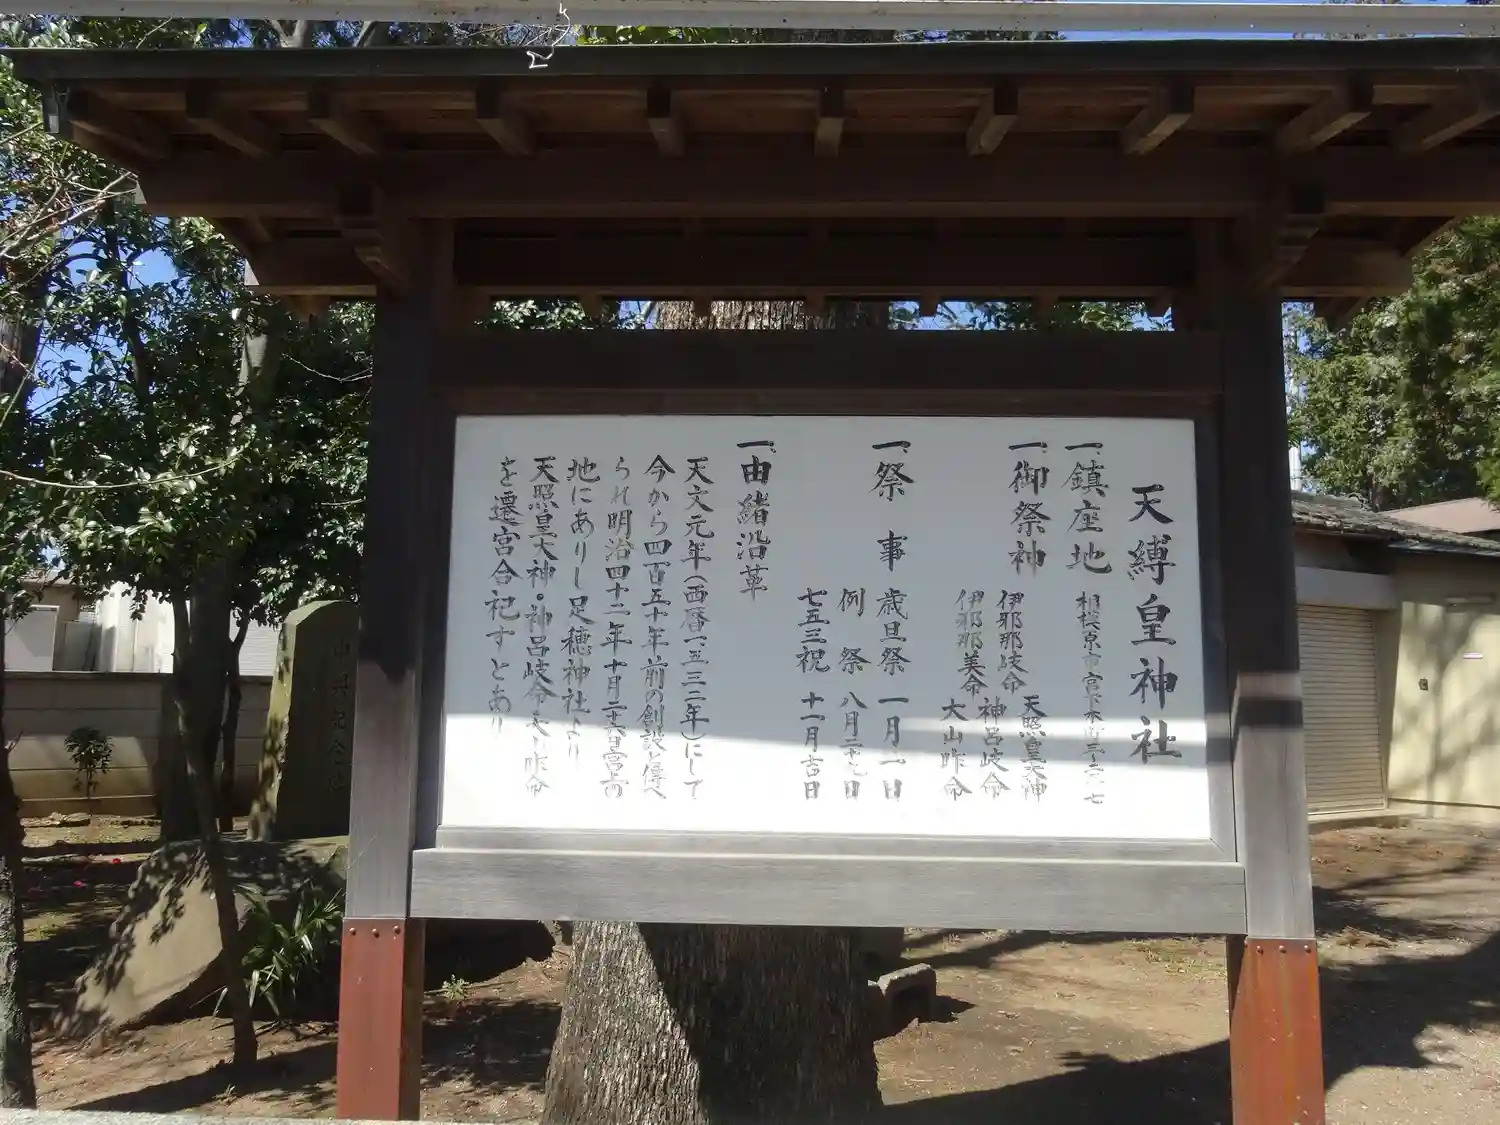 天縛皇神社
一、鎮座地 相模原市宮下本町三ー二ー七
一、御祭神
伊邪那岐命 天照皇大神
伊邪那美命 神呂岐命
大山咋命
一、祭事 歳旦祭 一月一日
例祭 八月二十九日
七五三祝 十一月吉日
一、由緒沿革
天文元年(西暦一、五三二年)にして
今から四百五十年前の創設と傳へ
られ明治四十二年十月二十六日宮下
地にありし足穂神社より
天照皇大神・神呂岐命・大山咋命
を遷宮合祀すとあり